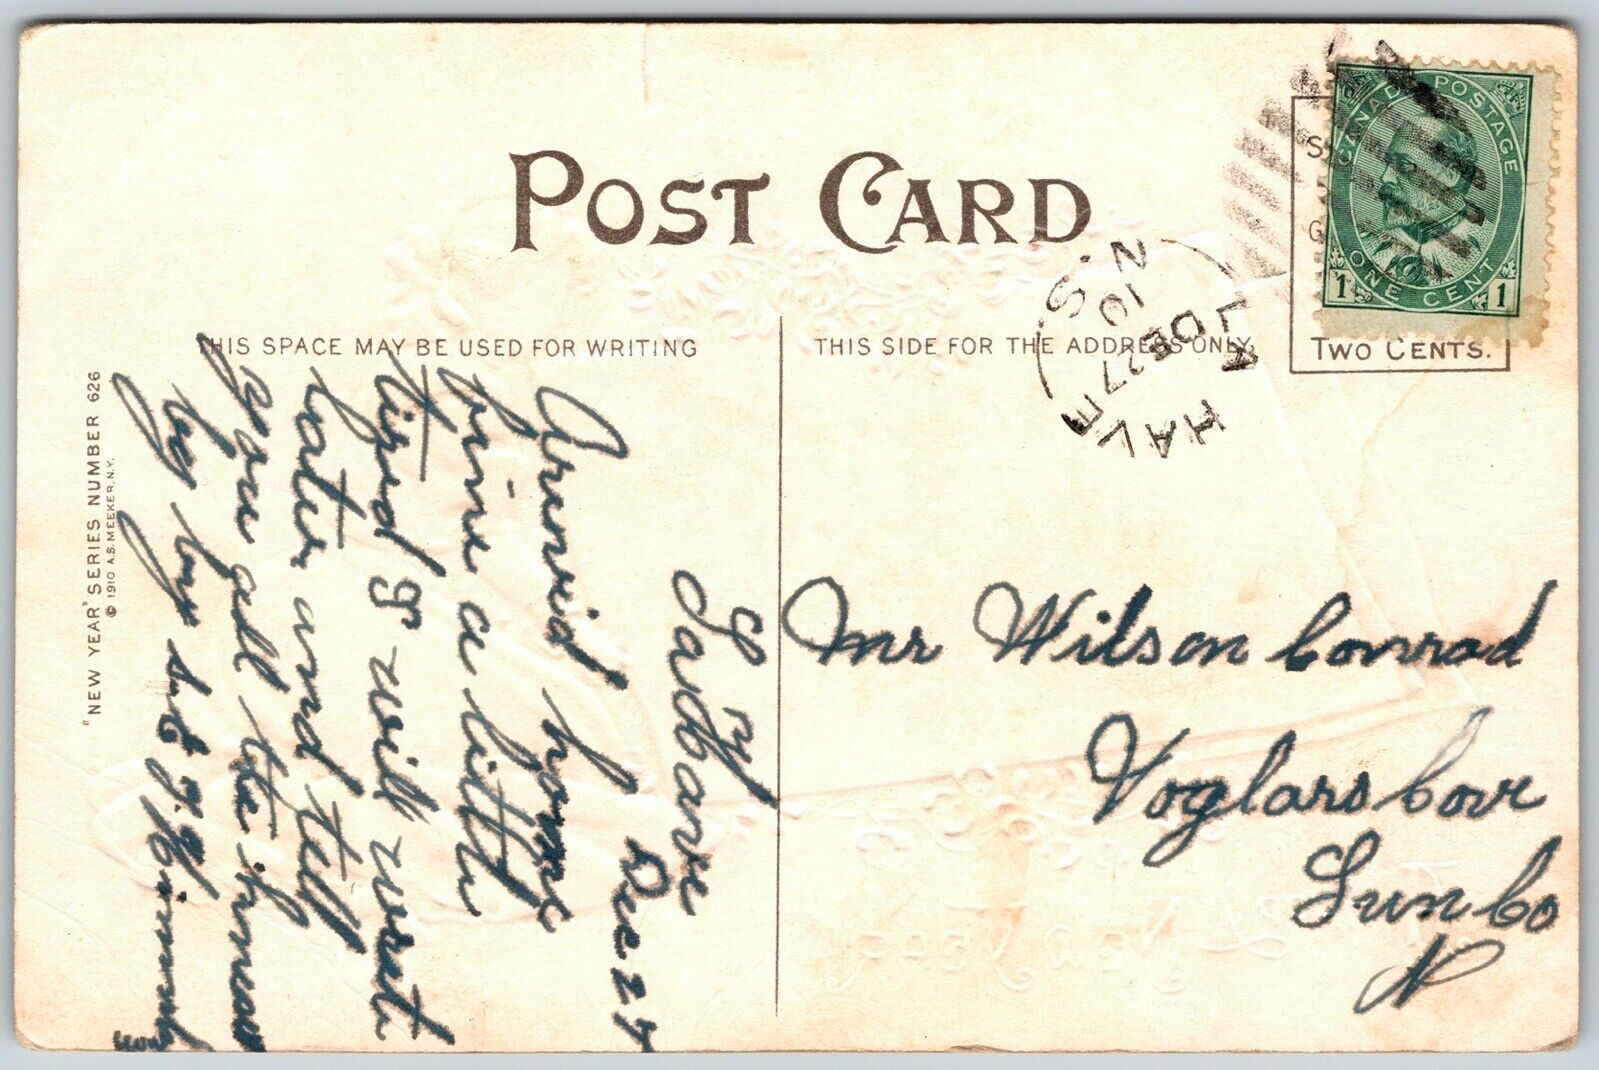 POST CARD
THIS SPACE MAY BE USED FOR WRITING
THIS SIDE FOR THE ADDRESS ONLY.
CANADA POSTAGE
ONE CENT
1 1
TWO CENTS.
LA HAVE
DE 27
10
N.S.
"NEW YEAR" SERIES NUMBER 626
© 1910 A.S. MEEKER, N.Y.
Dec 27
Arrived home
fine a little
tired I will write
later and tell
you all the news
by by
Mr Wilson Conrad
Voglars Cove
Lun Co
N